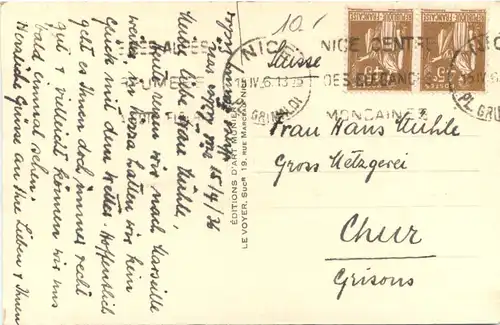 15/4/36
Meine liebe Frau Mühle,
heute gehen wir nach Marseille
weiter, in Nizza hatten wir kein
Glück mit dem Wetter. Hoffentlich
geht es Ihnen doch immer recht
gut & vielleicht können wir uns
bald einmal sehen.
Herzliche Grüsse an Ihre Lieben & Ihnen
ÉDITIONS D'ART MUNIER
LE VOYER, Sucr 19, RUE MARCEAU, NICE
10.
Suisse
NICE
15 IV 36 13 25
PL. GRIMALDI
NICE CENTRE
DES ELEGANCES
MONDAINES
NICE
PL. GRIMALDI
POSTES
Frau Hans Mühle
Gross Metzgerei
Chur
Grisons